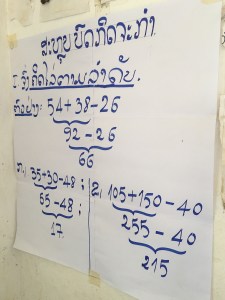 ສະຫຼຸບບົດກິດຈະກຳ
I ຈົ່ງຄິດໄລ່ຕາມລຳດັບ.
ຕົວຢ່າງ: 54+38-26
92-26
66
ກ, 35+30-48;
65-48;
17
ຂ, 105+150-40
255-40
215